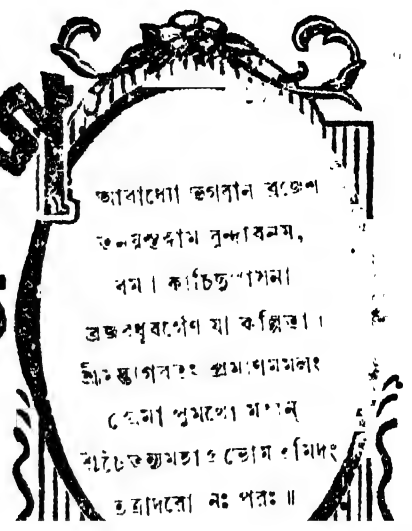 আরাধ্যো ভগবান ব্রজেশ
তনয়স্তদ্ধাম বৃন্দাবনম,
রম্যা কাচিদুপাসনা
ব্রজবধূবর্গেণ যা কল্পিতা।
শ্রীমদ্ভাগবতং প্রমাণমমলং
প্রেমা পুমর্থো মহান্
তত্রাদরো নঃ পরঃ ॥